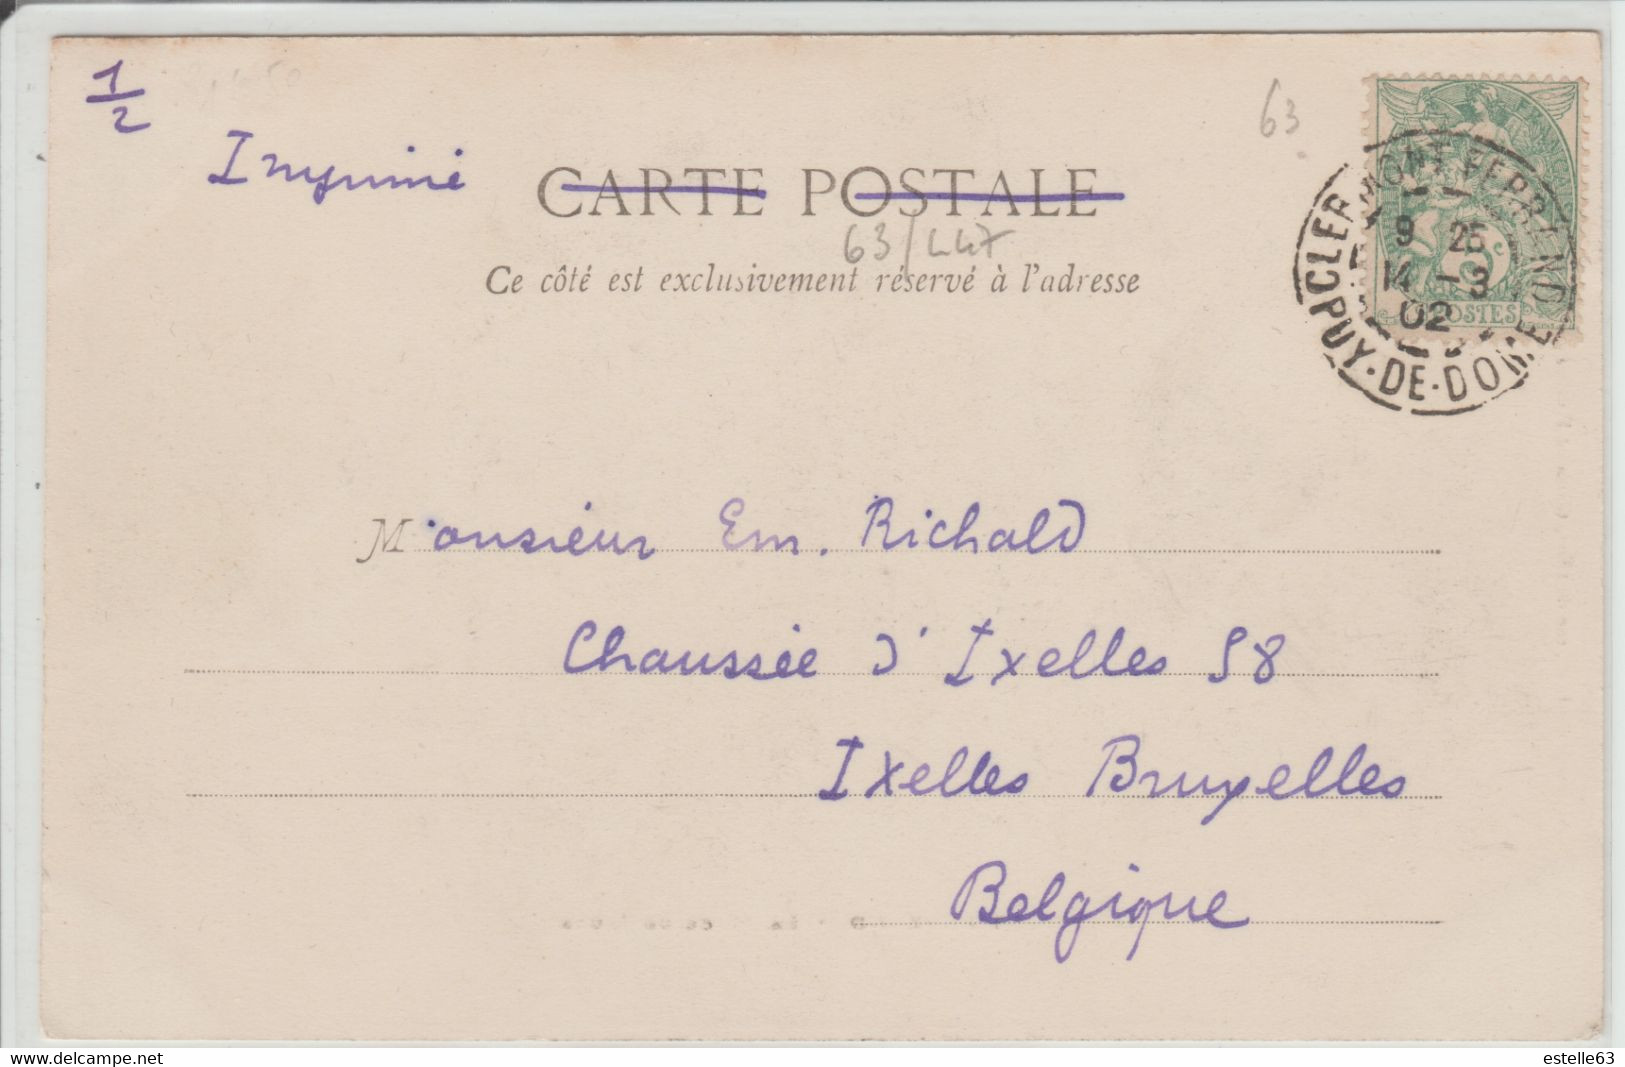 1/2
63
Imprimé
CARTE POSTALE
63/447
Ce côté est exclusivement réservé à l'adresse
CLERMONT-FERRAND
9 25
14 - 3
02
PUY-DE-DOME
5c
POSTES
Monsieur Em. Richald
Chaussée d'Ixelles 58
Ixelles Bruxelles
Belgique
www.delcampe.net
estelle63